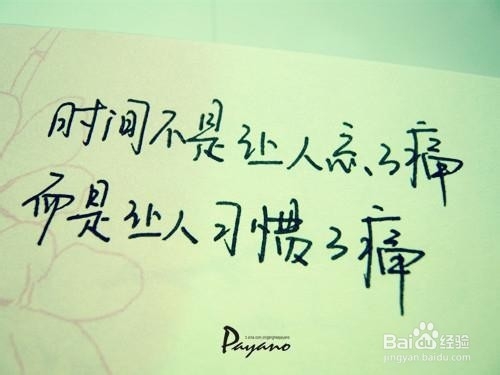 时间不是让人忘了痛
而是让人习惯了痛
Payano
Baidu经验
jingyan.baidu.com